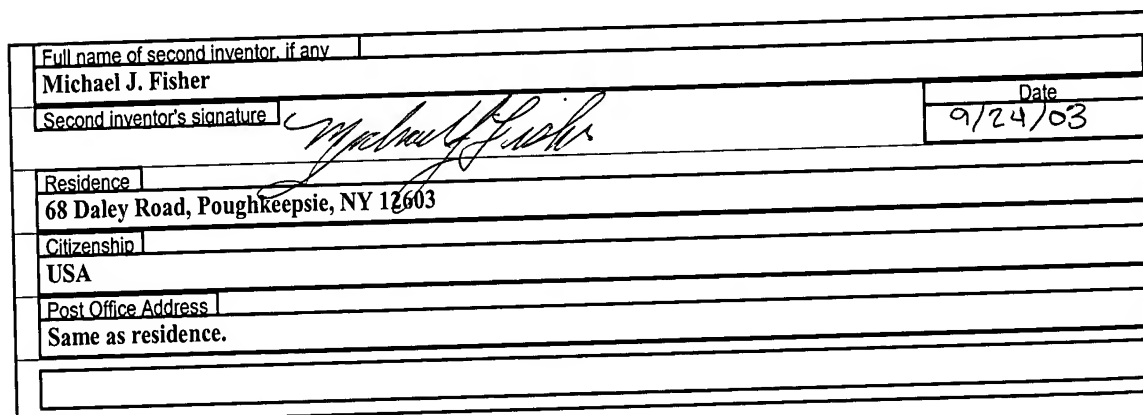 Full name of second inventor, if any
Michael J. Fisher
Second inventor's signature
Michael J. Fisher
Date
9/24/03
Residence
68 Daley Road, Poughkeepsie, NY 12603
Citizenship
USA
Post Office Address
Same as residence.